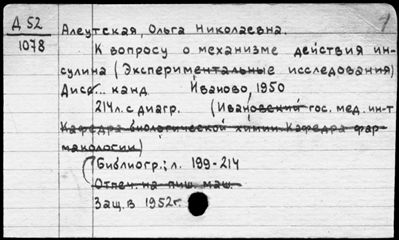 Д 52
1078
1
Алеутская, Ольга Николаевна.
К вопросу о механизме действия ин-
сулина (Экспериментальные исследования)
Дисс... канд Иваново, 1950
214л. с диагр. (Ивановский гос. мед. ин-т
Кафедра биологической химии. Кафедра фар-
макологии)
(Библиогр.: л. 199-214
Отпеч. на пиш. маш.
Защ. в 1952г.